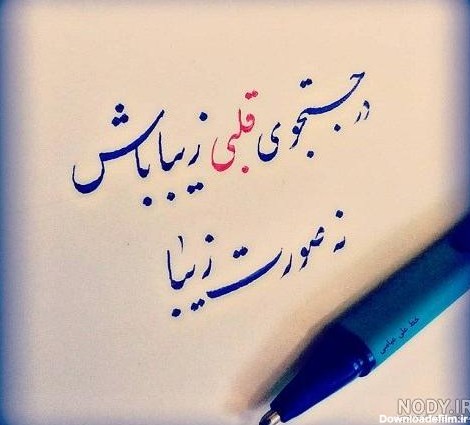 در جستجوی قلبی زیبا باش
نه صورت زیبا
خط علی عباسی
NODY.IR
Downloadefilm.ir